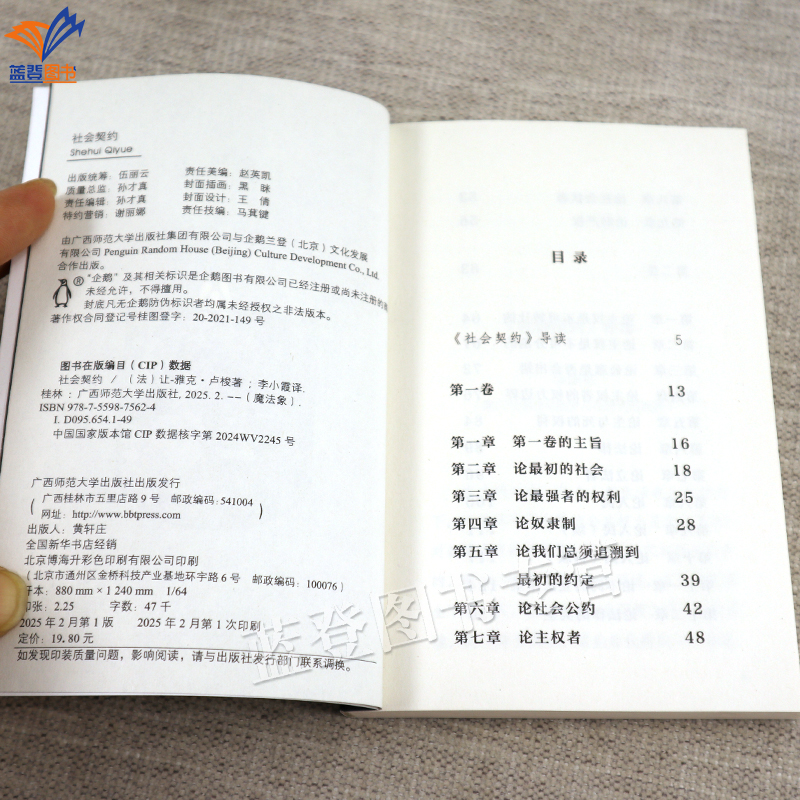 蓝登图书
社会契约
Shehui Qiyue
出版统筹：伍丽云 责任美编：赵英凯
质量总监：孙才真 封面插画：黑眯
责任编辑：孙才真 封面设计：王倩
特约营销：谢丽娜 责任技编：马萁键
由广西师范大学出版社集团有限公司与企鹅兰登（北京）文化发展
有限公司 Penguin Random House (Beijing) Culture Development Co., Ltd.
合作出版。
®“企鹅”及其相关标识是企鹅图书有限公司已经注册或尚未注册的
未经允许，不得擅用。
封底凡无企鹅防伪标识者均属未经授权之非法版本。
著作权合同登记号桂图登字：20-2021-149 号
图书在版编目（CIP）数据
社会契约 / （法）让-雅克·卢梭著；李小霞译.
桂林：广西师范大学出版社，2025. 2. --（魔法象）.
ISBN 978-7-5598-7562-4
I. D095.654.1-49
中国国家版本馆 CIP 数据核字第 2024WV2245 号
广西师范大学出版社出版发行
（广西桂林市五里店路 9 号 邮政编码：541004
网址：http://www.bbtpress.com）
出版人：黄轩庄
全国新华书店经销
北京博海升彩色印刷有限公司印刷
（北京市通州区金桥科技产业基地环宇路 6 号 邮政编码：100076）
开本：880 mm × 1 240 mm 1/64
印张：2.25 字数：47 千
2025 年 2 月第 1 版 2025 年 2 月第 1 次印刷
定价：19. 80 元
如发现印装质量问题，影响阅读，请与出版社发行部门联系调换。
目录
《社会契约》导读 5
第一卷 13
第一章 第一卷的主旨 16
第二章 论最初的社会 18
第三章 论最强者的权利 25
第四章 论奴隶制 28
第五章 论我们总须追溯到
最初的约定 39
第六章 论社会公约 42
第七章 论主权者 48
蓝登图书专营